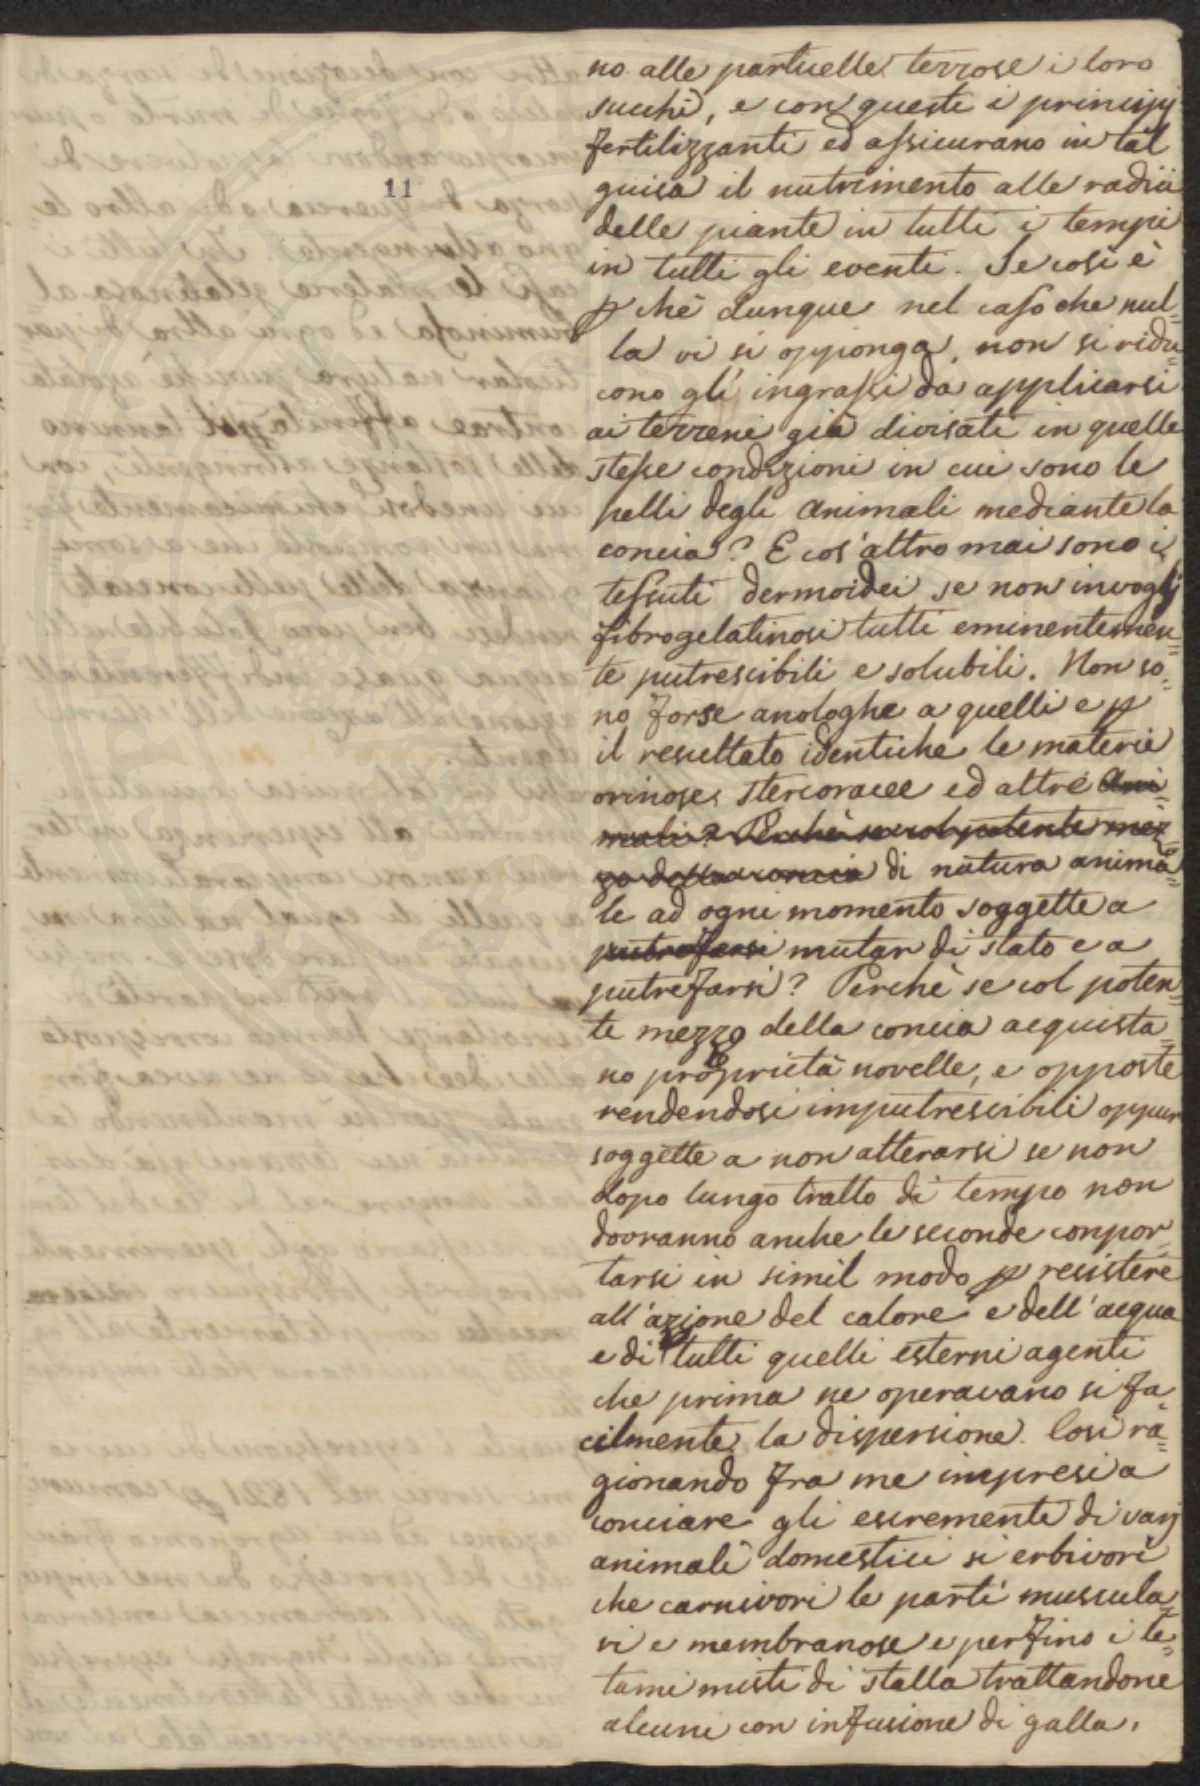 11
no alle particelle terrose i loro
succhi, e con questi i principj
fertilizzanti ed assicurano in tal
guisa il nutrimento alle radici
delle piante in tutti i tempi
in tutti gli eventi. Se così è
pchè dunque nel caso che nul=
la vi si opponga, non si ridu=
cono gl'ingrassi da applicarsi
ai terreni già divisati in quelle
stesse condizioni in cui sono le
pelli degli animali mediante la
concia? E cos'altro mai sono i
tessuti dermoidei se non invogli
fibrogelatinosi tutti eminentemen=
te putrescibili e solubili. Non so=
no forse anologhe a quelli e p
il resultato identiche le materie
orinose, stercoracee ed altre ani=
mali? Perchè se col potente mez=
zo della concia di natura anima=
le ad ogni momento soggette a
putrefarsi mutar di stato e a
putrefarsi? Perchè se col poten=
te mezzo della concia acquista=
no proprietà novelle, e opposte
rendendosi imputrescibili oppur
soggette a non alterarsi se non
dopo lungo tratto di tempo non
dovranno anche le seconde conpor=
tarsi in simil modo p resistere
all'azione del calore e dell'acqua
e di tutti quelli esterni agenti
che prima ne operavano si fa=
cilmente la dispersione. Così ra=
gionando fra me impresi a
conciare gli escrementi di varj
animali domestici si erbivori
che carnivori le parti muscula=
ri e membranose e perfino i le=
tami misti di stalla trattandone
alcuni con infusione di galla,